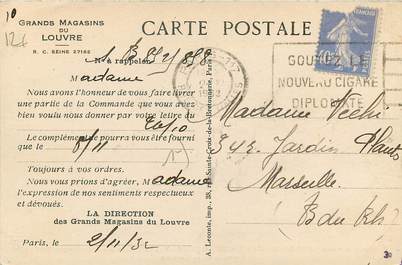 GRANDS MAGASINS
DU
LOUVRE
R. C. SEINE 27162
CARTE POSTALE
N° à rappeler
Madame
Nous avons l'honneur de vous faire livrer
une partie de la Commande que vous avez
bien voulu nous donner par votre lettre du
20/10
Le complément pourra vous être fourni
que le 8/11
Toujours à vos ordres.
Nous vous prions d'agréer, Madame
l'expression de nos sentiments respectueux
et dévoués.
LA DIRECTION
des Grands Magasins du Louvre
Paris, le 2/11/32
A. Leconte, imp., 38, rue Sainte-Croix-de-la-Bretonnerie, Paris
GOUTEZ LE
NOUVEAU CIGARE
DIPLOMATE
Madame
Jardin
Marseille
B du Rh